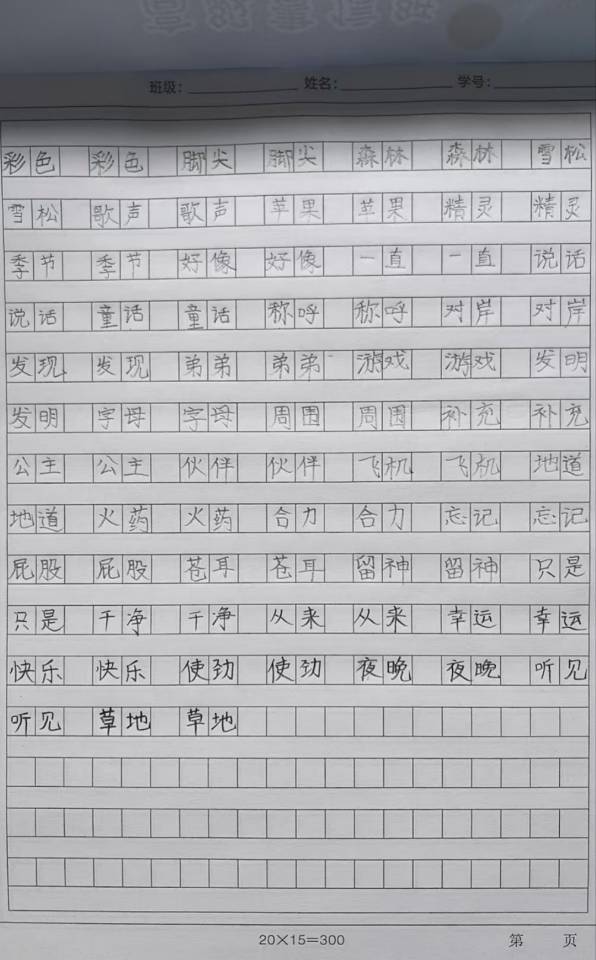 班级： 姓名： 学号：
彩色 彩色 脚尖 脚尖 森林 森林 雪松
雪松 歌声 歌声 苹果 苹果 精灵 精灵
季节 季节 好像 好像 一直 一直 说话
说话 童话 童话 称呼 称呼 对岸 对岸
发现 发现 弟弟 弟弟 游戏 游戏 发明
发明 字母 字母 周围 周围 补充 补充
公主 公主 伙伴 伙伴 飞机 飞机 地道
地道 火药 火药 合力 合力 忘记 忘记
屁股 屁股 苍耳 苍耳 留神 留神 只是
只是 干净 干净 从来 从来 幸运 幸运
快乐 快乐 使劲 使劲 夜晚 夜晚 听见
听见 草地 草地
20×15=300 第 页